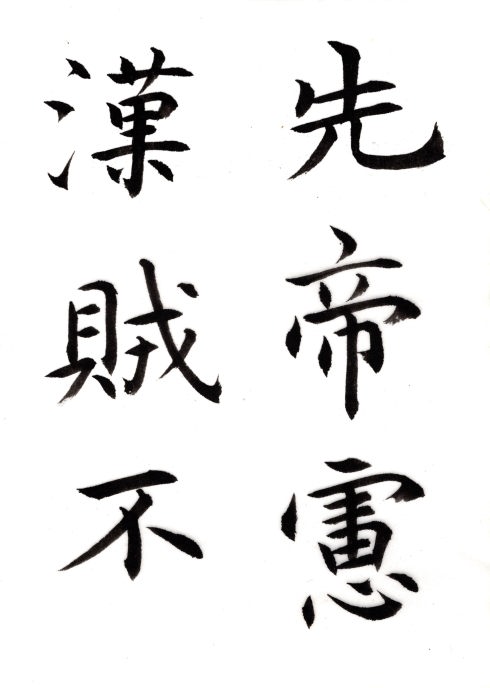 先帝慮
漢賊不